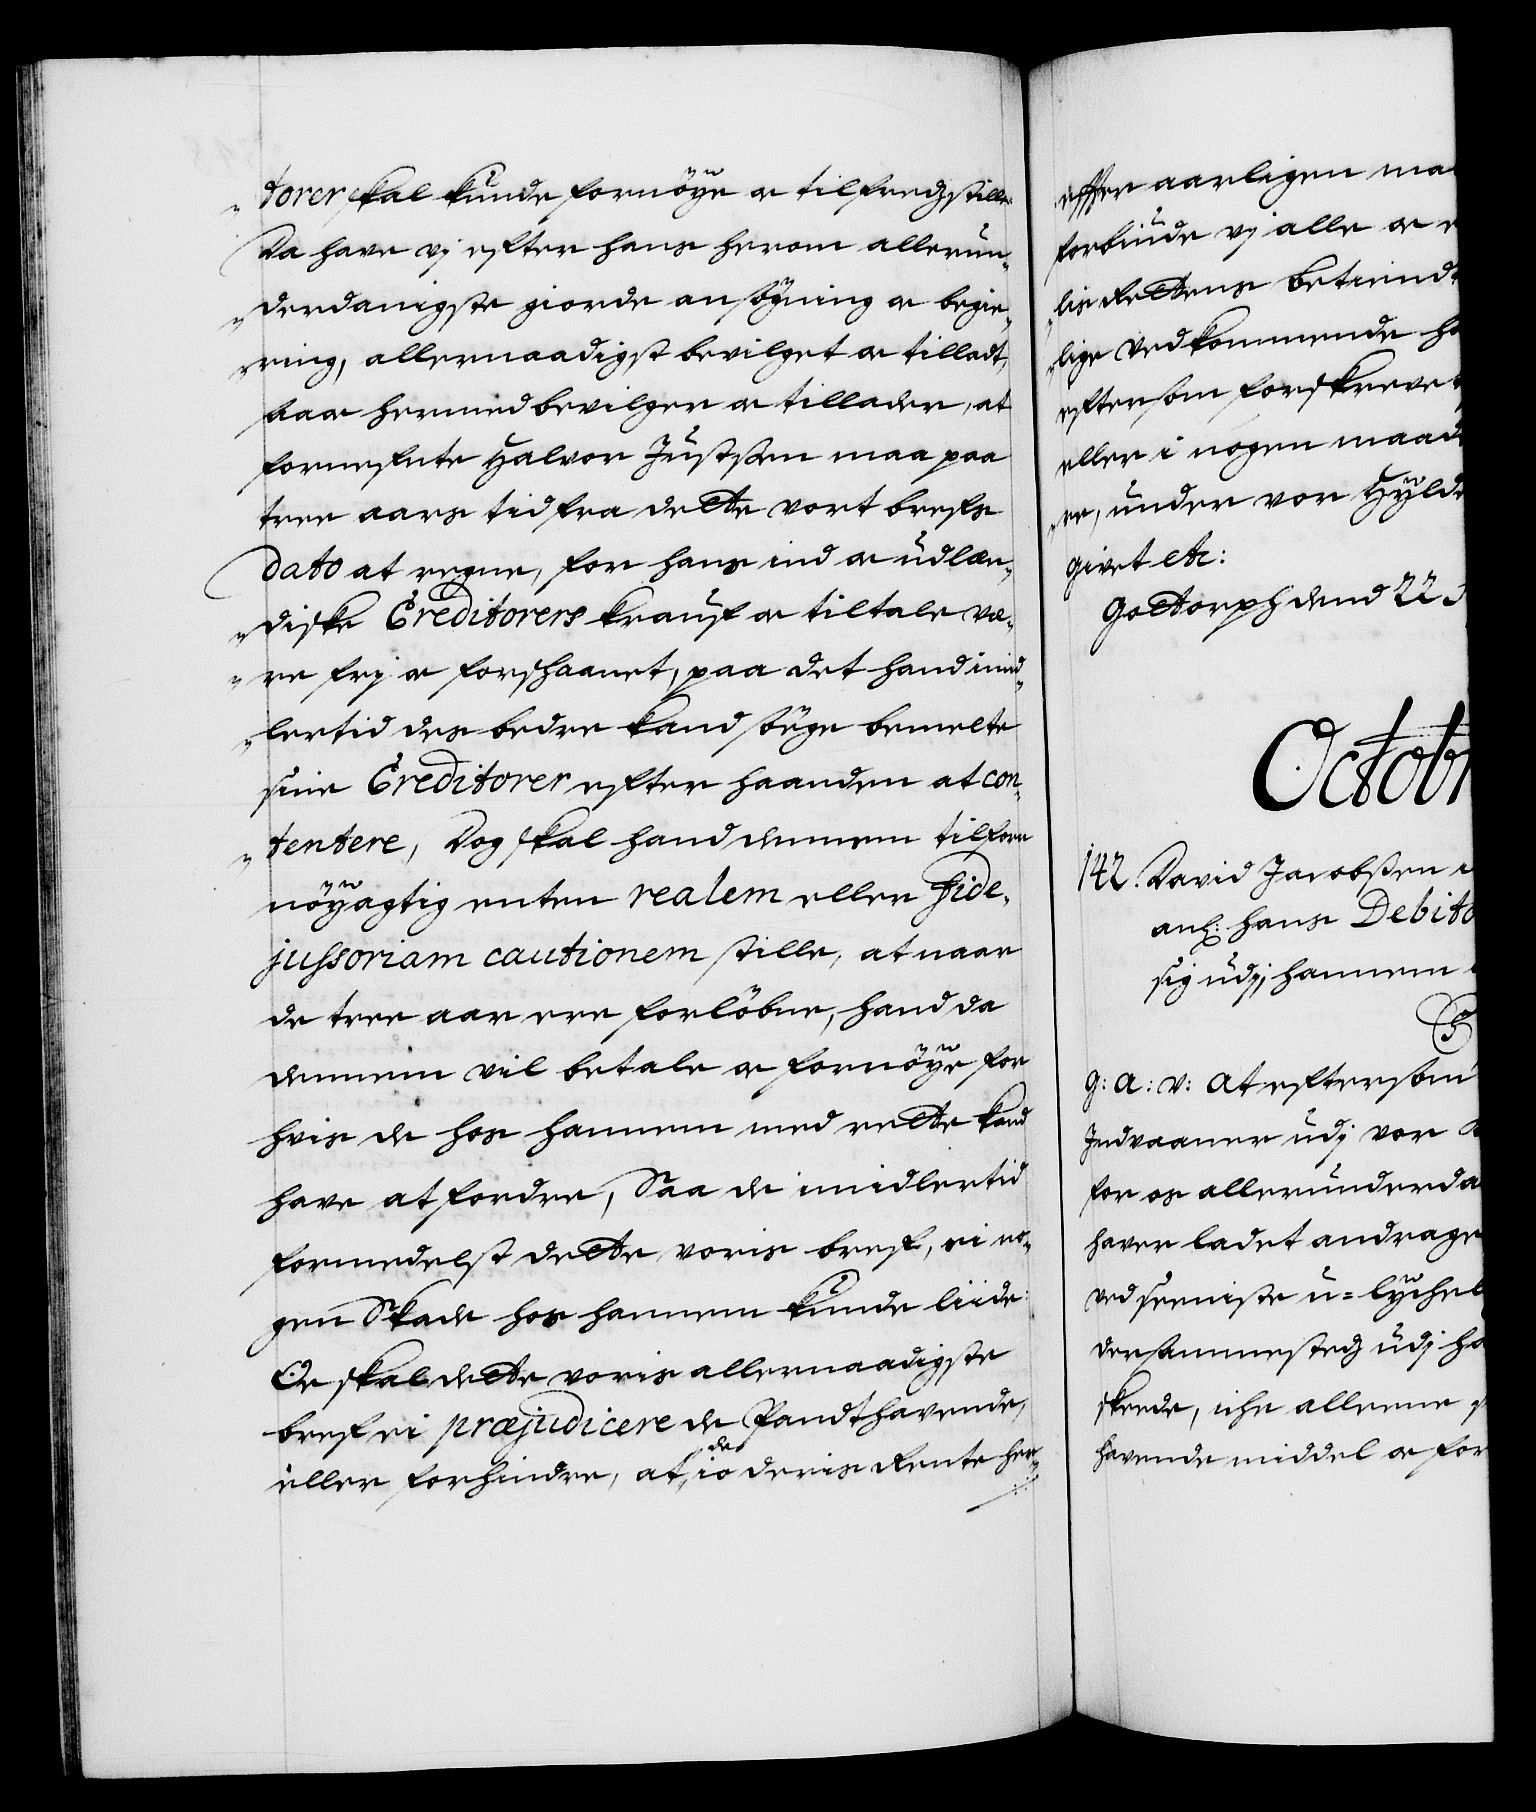 torer skal kunde fornöÿe oc tilfredzstille
Da have vj efter hans herom allerun-
derdanigste giorde ansögning oc begie-
ring, allernaadigst bevilget oc tilladt,
saa oc hermed bevilger oc tillader, at
fornefnte Halvor Justssen maa paa
tree aars tid fra dette vort brefs
dato at regne, for hans ind oc udlæn-
diske Creditorers krauf oc tiltale væ-
re frj oc forskaanet, paa det hand imid-
lertid des bedre kand söge bemelte
sine Creditorer efter haanden at con-
tentere, Dog skal hand dennem tilforn
nöÿagtig enten realem eller Fide-
jussoriam cautionem stille, at naar
de tree aar ere forlöbne, hand da
dennem vil betale oc fornöÿe for
hvis de hos hannem med rette kand
have at fordre, Saa de imidlertid
formedelst dette voris bref, ei no-
gen Skade hos hannem kunde liide:
Oc skal dette voris allernaadigste
bref ei præjudicere de Pandthavende,
eller forhindre, at de jo deris Rente her-
efter aarligen maa
forbiude vj alle oc e
lis Rettens betiend
lige vedkommende ha
eftersom forskreve
eller i nogen maade
re, under vor Hÿlde
givet etc:
Gottorph dend 22 S
Octobr
142. David Jacobssen
anl: hans Debito
sig udj hannem
G: A: V: At eftersom
Indvaaner udj vor
for os allerunderda
haver ladet andrage
ved seeniste u=lÿchel
dersammestedz udj ha
skeede, iche alleene
havende middel oc for